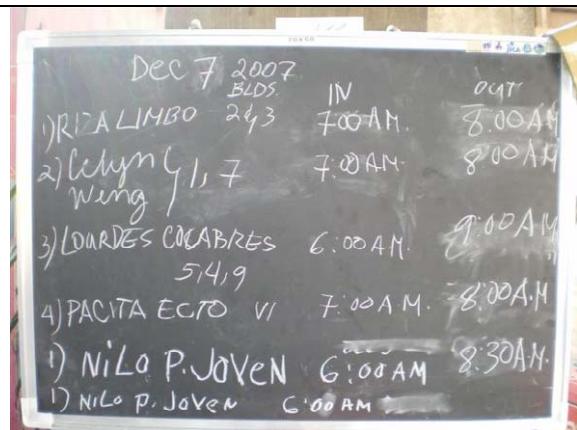 Dec 7 2007
BLDS. IN OUT
1) RIZA LIMBO 2&3 7:00 AM. 8:00 AM
2) Celyn 1, 7 7:00 AM. 8:00 AM
Weng
3) LOURDES COCABRES 6:00 AM. 9:00 AM
5,4,9
4) PACITA ECTO VI 7:00 A.M. 8:00 A.M
1) NiLo P. JoVeN 6:00 AM 8:30 A.M.
1) NiLo P. JoVeN 6:00 AM